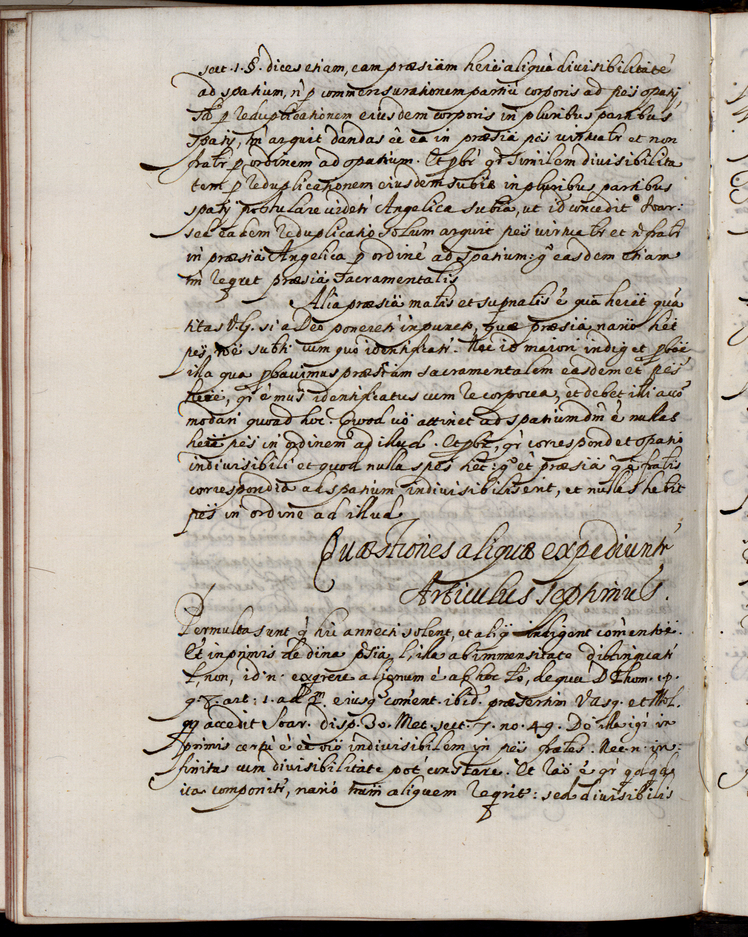 sect. 1. §. dices etiam, eam præsiãm here aliquã divisibilitatẽ
ad spatium, ñ p commensurationem partiũ corporis ad ptes spatij
sed p reduplicationem eiusdem corporis in pluribus partibus
spatij, arguit dandas ẽe ea in præsiã ptes virtuatr et non
fratr p ordinem ad spatium. Et pbr qr similem divisibilita
tem p reduplicationem eiusdem subiæ in pluribus partibus
spatij postulare videtr Angelica subiã, ut id concedit Soar:
sed eadem reduplicatio solum arguit ptes virtuatr et ñ fratr
in præsiã Angelica p ordinẽ ad spatium: gº easdem etiam
reqret præsiã sacramentalis
Alia præsiã matis et suprnalis ẽ quã heret quã
titas v.g. si a Deo poneretr in puncto, quæ præsiã nanõ het
ptes, subti cum quo identificatr. Nec id maiori indiget pbõe
illa qua pbavimus præsiãm sacramentalem easdem et ptes
here, qr ẽ mus identificatus cum re corporea, et debet illi acõ
modari quoad hoc. Quod võ attinet ad spatium ẽ nullas
here ptes in ordinem ad illud. Et pbr, qr correspondet spatio
indivisibili et quod nullas ptes het: gº et præsiã qª fratis
correspondiã ad spatium indivisibilis erit, et nullas hebit
ptes in ordine ad illud
Quæstiones aliquæ expediuntr
Articulus septimus.
Permulta sunt q hic annecti solent, et aliq indigent comentõe.
Et in primis de dina psiã, illa ab immensitate distinguatr
l non, id n. exgrere alienum ẽ ab hoc lo, de qua D Thom. 1. p.
q. 7. art: 1. ad eiusq coment. ibid. præsertim Vasq. et Mol.
accedit Soar. disp. 30. Met. sect. 7. no. 49. De illa igr in
primis certũ ẽ eã ẽe indivisibilem in ptes fraless. Nec n. in:
finitas cum divisibilitate pot constare. Et raõ ẽ qr qdqd
ita componitr, nanõ aliquem reqrit: sed divisibilis